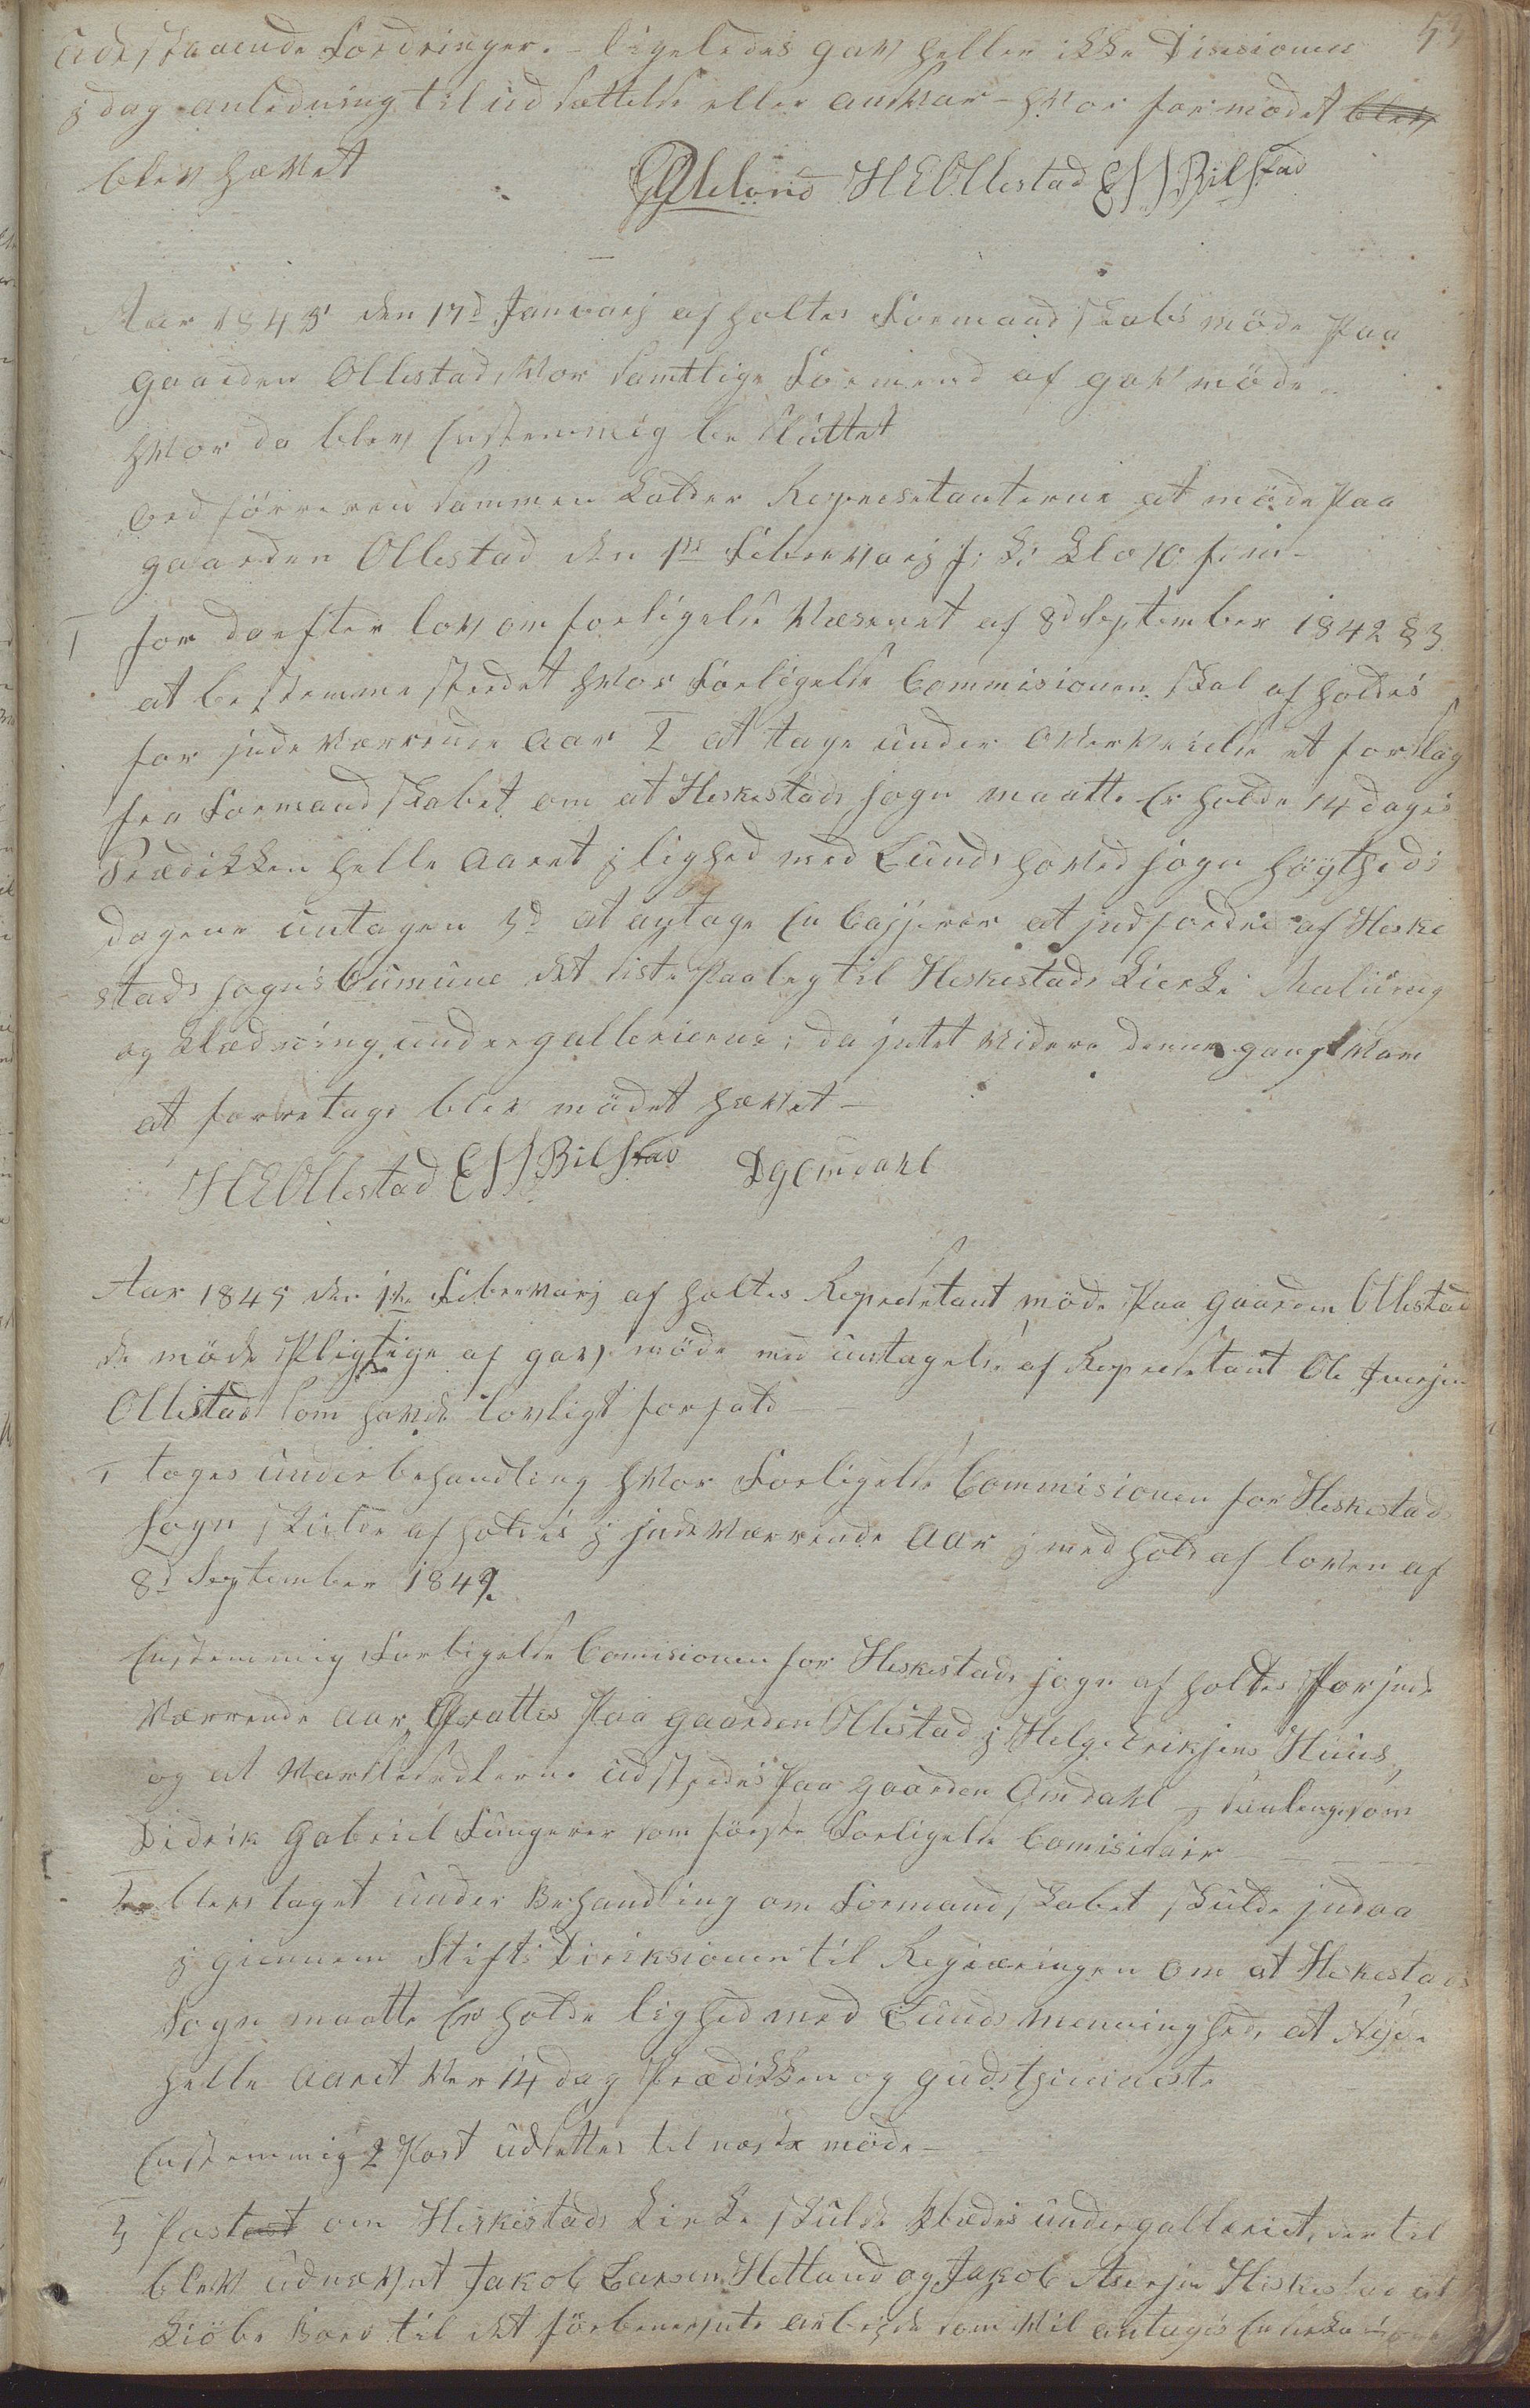 53
udestaaende Fordringer. – ligeledes gav heller ikke Diisionen
j dag anledning til udsættelse eller ansvar – hvor for mødet blev
blev hævet
Omlund HEOllestad EHBilstad
Aar 1845 den 17d Januarj af holtes Formandskabs møde Paa
gaarden Ollestad, hvor samtlige Formend af gav møde –
hvor da blev Enstemmig be sluttet
ordførreren sammen kalder Represetanterne at møde Paa
gaarden Ollestad den 1ste Februarj f. k. klo 10 form–
1 for da efter lov om forligelse Væsenet af 8d September 1842 § 3
at bestemme stedet hvor Forligelse Commisionen skal af holdes
for jnde værrende aar 2 at tage under overveielse et forslag
fra Formandskabet om at Heskestads sogn maatte Er holde 14 dages
Prædikken helle aaret j lighed med Lunds hoved sogn høytheds
dagene untagen 3d at antage En Casserer at jndfordre af Heske
stads sogns Cumune det siste Paaleg til Heskestads Kierke Maluing
og klædning under gallerierne; da jntet videre denne gang var
at forretage blev mødet hævet –
HEOllestad EHBilstad DGOmdahl
Aar 1845 den 1ste Februarj af holtes Represetant møde Paa gaarden Ollestad
de møde Pligtige af gav møde med untagelse af Represetant Ole Iversen
Ollestad som havde lovligt forfald –
1 toges under behandling hvor Forligelse Commisionen for Heskestads
sogn skulde af holdes j jndeværrende aar j med hold af loven af
8d September 1842.
Enstemmig Forligelse Comisionen for Heskestads sogn af holdes for jnde
værrende aar attes Paa gaarden Ollestad j Helge Eriksens Huus,
og at Varselsedlerne udstedes Paa gaarden Omdahl – saalenge som
Didrik Gabriel Fungerer som første Forligelse Comisidair – – –
2 blev taget under Behandling om Formandskabet skulde jndaa
j giennem Stifts Direksionen til Regiæringen om at Heskestads
Sogn maatte Er holde lighed med Lunds menningheds at Nyde
helle aaret Ver 14 dag Prædikken og gudsthieneste
Enstemmig 2 Post udsettes til næste møde –
3 Postest om Heskestads Kirke skulde klædes under galleriet, der til
blev udnævnt Jakob Larsen Hetland og Jakob Asersen Heskestad at
kiøbe Bord til det førbenevnte arbeyde som vil antages